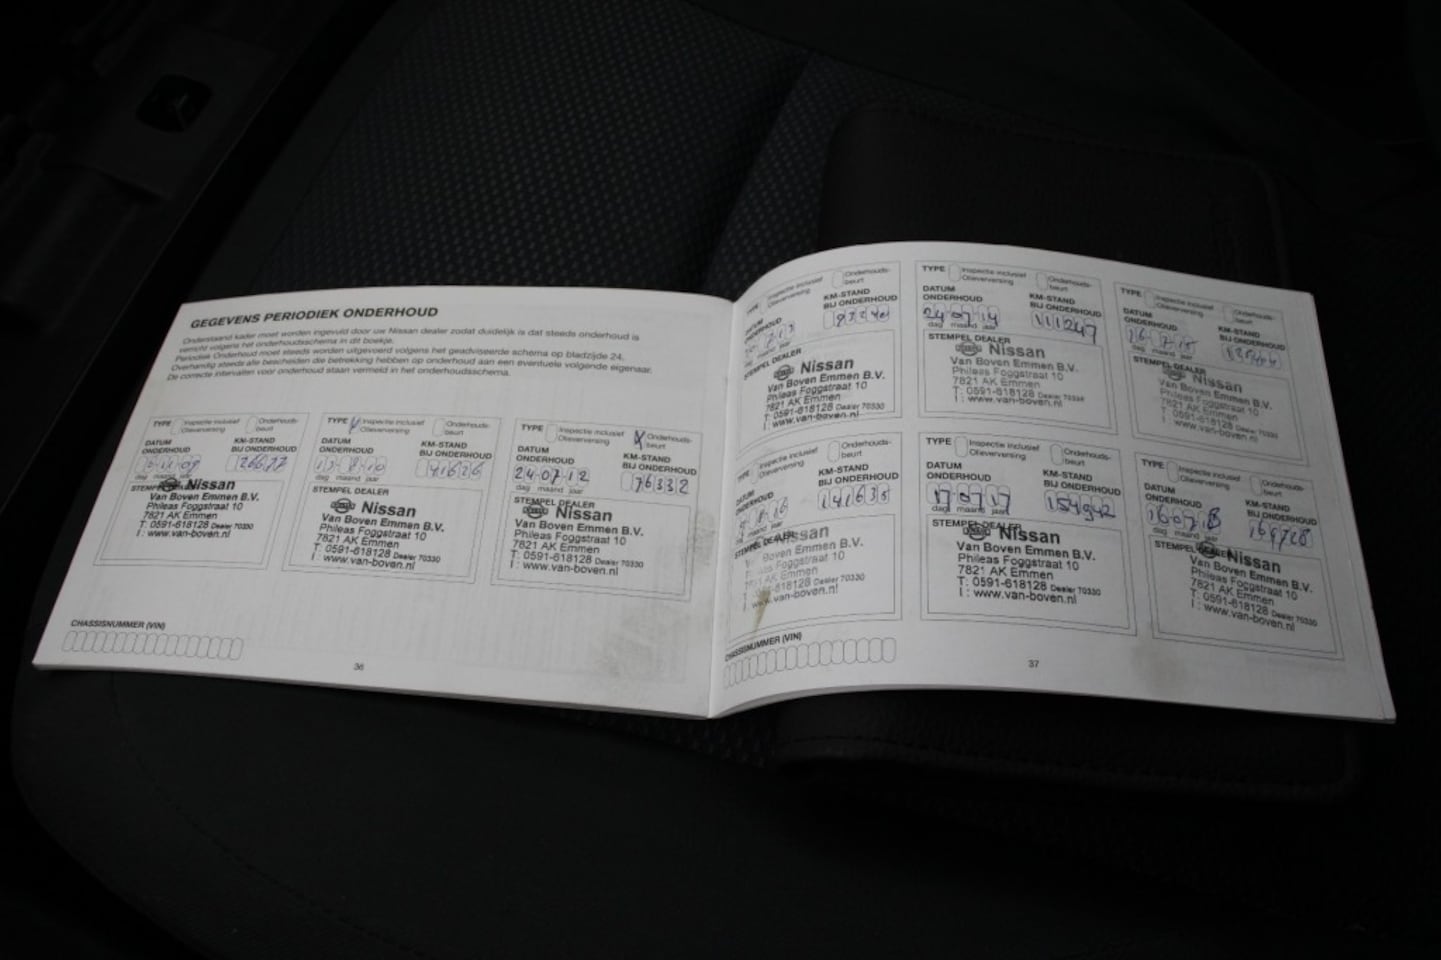 GEGEVENS PERIODIEK ONDERHOUD
Onderstaand kader moet worden ingevuld door uw Nissan dealer zodat duidelijk is dat steeds onderhoud is
verricht volgens het onderhoudsschema in dit boekje.
Periodiek Onderhoud moet steeds worden uitgevoerd volgens het geadviseerde schema op bladzijde 24.
Overhandig steeds alle bescheiden die betrekking hebben op onderhoud aan een eventuele volgende eigenaar.
De correcte intervallen voor onderhoud staan vermeld in het onderhoudsschema.
TYPE Inspectie inclusief Olieverversing Onderhouds-beurt
DATUM ONDERHOUD KM-STAND BIJ ONDERHOUD
dag maand jaar
Nissan
Van Boven Emmen B.V.
Phileas Foggstraat 10
7821 AK Emmen
T: 0591-618128 Dealer 70330
I : www.van-boven.nl
TYPE Inspectie inclusief Olieverversing Onderhouds-beurt
DATUM ONDERHOUD KM-STAND BIJ ONDERHOUD
13 8 10 41626
dag maand jaar
STEMPEL DEALER
Nissan
Van Boven Emmen B.V.
Phileas Foggstraat 10
7821 AK Emmen
T: 0591-618128 Dealer 70330
I : www.van-boven.nl
TYPE Inspectie inclusief Olieverversing X Onderhouds-beurt
DATUM ONDERHOUD KM-STAND BIJ ONDERHOUD
24 07 12 76332
dag maand jaar
STEMPEL DEALER
Nissan
Van Boven Emmen B.V.
Phileas Foggstraat 10
7821 AK Emmen
T: 0591-618128 Dealer 70330
I : www.van-boven.nl
CHASSISNUMMER (VIN)
36
TYPE Inspectie inclusief Olieverversing Onderhouds-beurt
DATUM ONDERHOUD KM-STAND BIJ ONDERHOUD
dag maand jaar
STEMPEL DEALER
Nissan
Van Boven Emmen B.V.
Phileas Foggstraat 10
7821 AK Emmen
T: 0591-618128 Dealer 70330
I : www.van-boven.nl
TYPE Inspectie inclusief Olieverversing Onderhouds-beurt
DATUM ONDERHOUD KM-STAND BIJ ONDERHOUD
24 07 14 111247
dag maand jaar
STEMPEL DEALER
Nissan
Van Boven Emmen B.V.
Phileas Foggstraat 10
7821 AK Emmen
T: 0591-618128 Dealer 70330
I : www.van-boven.nl
TYPE Inspectie inclusief Olieverversing Onderhouds-beurt
DATUM ONDERHOUD KM-STAND BIJ ONDERHOUD
16 7 15
dag maand jaar
STEMPEL DEALER
Nissan
Van Boven Emmen B.V.
Phileas Foggstraat 10
7821 AK Emmen
T: 0591-618128 Dealer 70330
I : www.van-boven.nl
TYPE Inspectie inclusief Olieverversing Onderhouds-beurt
DATUM ONDERHOUD KM-STAND BIJ ONDERHOUD
141635
dag maand jaar
STEMPEL DEALER
Nissan
Van Boven Emmen B.V.
Phileas Foggstraat 10
7821 AK Emmen
T: 0591-618128 Dealer 70330
I : www.van-boven.nl
TYPE Inspectie inclusief Olieverversing Onderhouds-beurt
DATUM ONDERHOUD KM-STAND BIJ ONDERHOUD
17 07 17 154942
dag maand jaar
STEMPEL DEALER
Nissan
Van Boven Emmen B.V.
Phileas Foggstraat 10
7821 AK Emmen
T: 0591-618128 Dealer 70330
I : www.van-boven.nl
TYPE Inspectie inclusief Olieverversing Onderhouds-beurt
DATUM ONDERHOUD KM-STAND BIJ ONDERHOUD
16 07 18
dag maand jaar
STEMPEL DEALER
Nissan
Van Boven Emmen B.V.
Phileas Foggstraat 10
7821 AK Emmen
T: 0591-618128 Dealer 70330
I : www.van-boven.nl
CHASSISNUMMER (VIN)
37